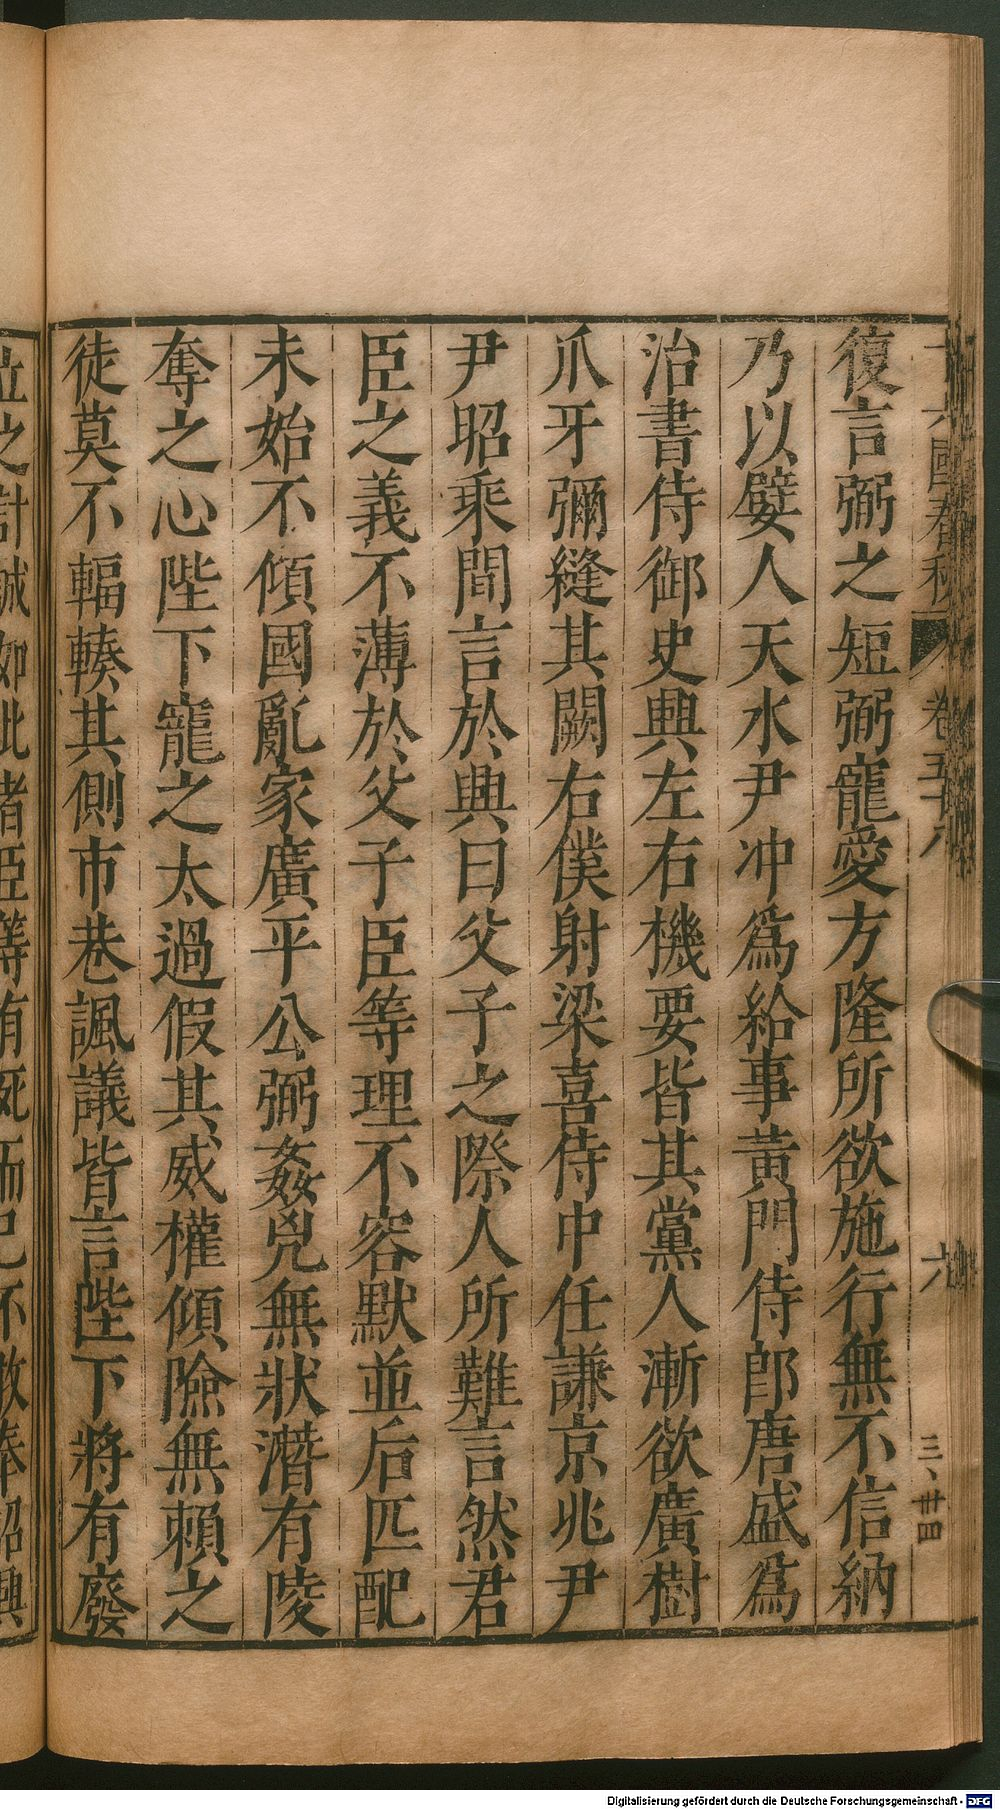 十六國春秋 卷五十八 六 三、廿四
復言弼之短弼寵愛方隆所欲施行無不信納
乃以嬖人天水尹冲爲給事黃門侍郎唐盛爲
治書侍御史興左右機要皆其黨人漸欲廣樹
爪牙彌縫其闕右僕射梁喜侍中任謙京兆尹
尹昭乘間言於興曰父子之際人所難言然君
臣之義不薄於父子臣等理不容默並后匹配
未始不傾國亂家廣平公弼姦兇無狀潛有陵
奪之心陛下寵之太過假其威權傾險無賴之
徒莫不輻輳其側市巷諷議皆言陛下將有廢
立之計誠如此者臣等有死而已不敢奉詔興
Digitalisierung gefördert durch die Deutsche Forschungsgemeinschaft - DFG